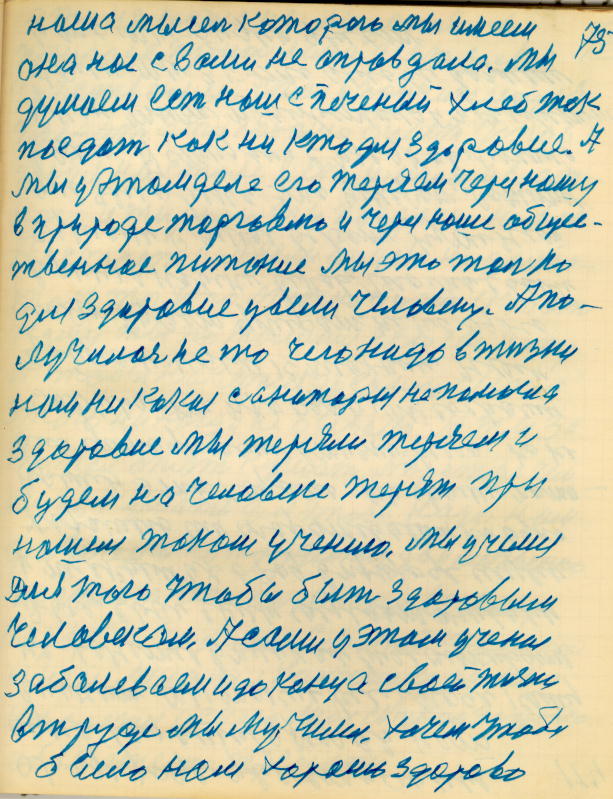 75
наша мысел которою мы имеем
она нас с вами не оправдала. Мы
думаем ест наш спеченый хлеб так
поедат как ни кто для здоровие. А
мы у этом деле его теряем через нашу
в природе торговлю и через наше общес-
твенное питание мы это толко
для здоровие увели человеку. А по-
лучилося не то чего надо в жизни
нам ни какие санатории не помогли
здоровие мы теряли теряем и
будем на человеке терят при
нашем таком учению. Мы учемся
для того чтобы быт здоровым
человеком. А сами у этом учении
заболеваем и до конца своей жизни
в труде мы мучимся. хочем чтобы
было нам хорошо здорово